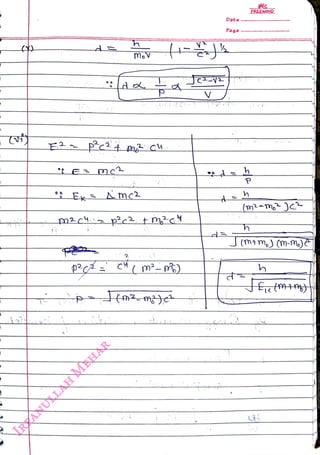 Date
Page
(v) λ = h/m₀v (1 - v²/c²)^½
∵ λ ∝ 1/p ∝ √c²-v²/v
(vi) E² = p²c² + m₀² c⁴
∵ E = mc²
∵ Eₖ = Δmc²
m²c⁴ = p²c² + m₀²c⁴
p²c² = c⁴ (m² - m₀²)
p = √(m² - m₀²)c²
∵ λ = h/p
λ = h/(m² - m₀²)c²
λ = h/√(m+m₀)(m-m₀)c²
λ = h/√Eₖ(m+m₀)
IRFANULLAH MEHAR